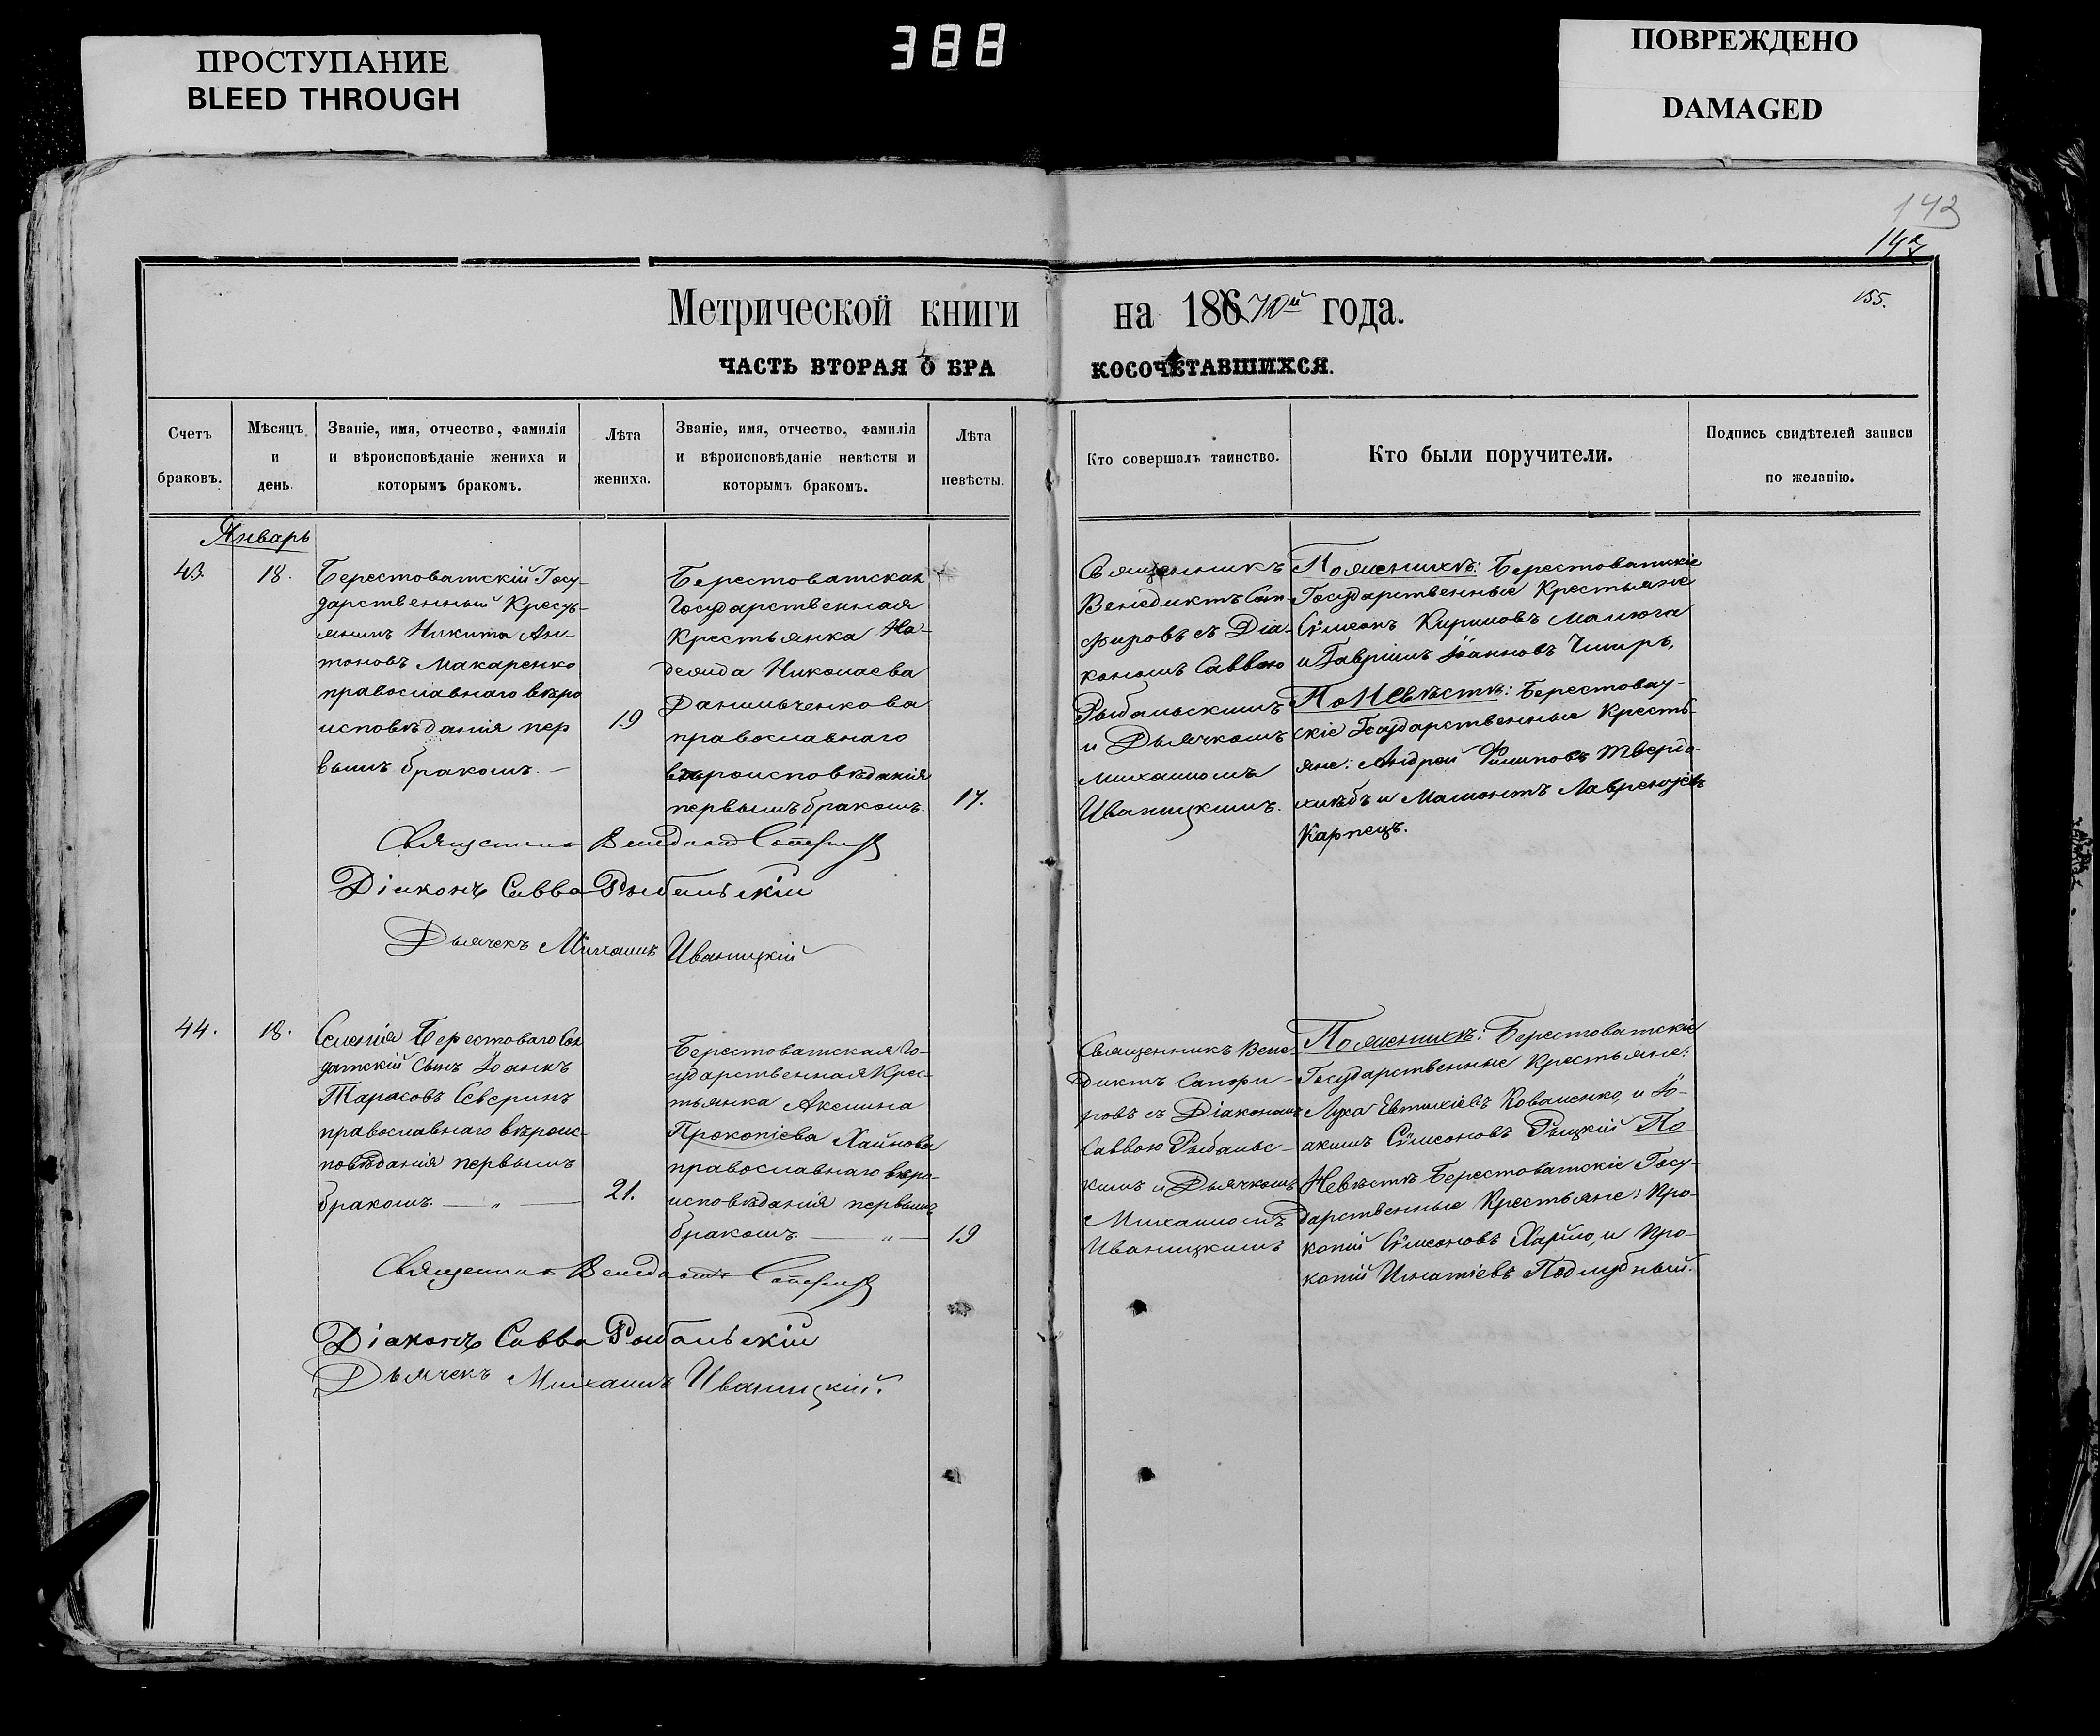 388
ПРОСТУПАНИЕ
BLEED THROUGH
ПОВРЕЖДЕНО
DAMAGED
143
155.
Метрической книги на 18670й года.
ЧАСТЬ ВТОРАЯ О БРАКОСОЧЕТАВШИХСЯ.
Счетъ браковъ.
Мѣсяцъ и день.
Званіе, имя, отчество, фамилія и вѣроисповѣданіе жениха и которымъ бракомъ.
Лѣта жениха.
Званіе, имя, отчество, фамилія и вѣроисповѣданіе невѣсты и которымъ бракомъ.
Лѣта невѣсты.
Кто совершалъ таинство.
Кто были поручители.
Подпись свидѣтелей записи по желанію.
Январь
43.
18.
Берестоватскій Госу-
дарственный Кресть-
янинъ Никита Ан-
тоновъ Макаренко
православнаго вѣро
исповѣданія пер
вымъ бракомъ. —
19
Берестоватская
Государственная
Крестьянка На-
дежда Николаева
Данильченкова
православнаго
вѣроисповѣданія
первымъ бракомъ.
17.
Священникъ
Венедиктъ Сап-
фировъ съ Діа-
кономъ Саввою
Рыбальскимъ
и Дьячкомъ
Михаиломъ
Иваницкимъ.
По женихѣ: Берестоватскіе
Государственные Крестьяне
Сѵмеонъ Кириловъ Малюга
и Гавріилъ Іоанновъ Чмирь,
По Невѣстѣ: Берестоват-
скіе Государственные Кресть-
яне: Андрей Филиповъ Твердо-
хлѣбъ и Мамонтъ Лаврентіевъ
Карпецъ.
Священникъ Венедиктъ Сапфировъ
Діаконъ Савва Рыбальскій
Дьячекъ Михаилъ Иваницкій
44.
18.
Селенія Берестоваго Сол
датскій Сынъ Іоаннъ
Тарасовъ Северинъ
православнаго вѣроис-
повѣданія первымъ
бракомъ. — „ —
21.
Берестоватская Го-
сударственная Крес-
тьянка Аксинна
Прокопіева Хайлова
православнаго вѣро-
исповѣданія первымъ
бракомъ. — „ —
19
Священникъ Вене-
диктъ Сапфи-
ровъ съ Діакономъ
Саввою Рыбальс-
кимъ и Дьячкомъ
Михаиломъ
Иваницкимъ
По женихѣ: Берестоватскіе
Государственные Крестьяне:
Лука Евтихіевъ Коваленко, и Іо-
акимъ Сѵмеоновъ Рыцкій По
Невѣстѣ Берестоватскіе Госу-
дарственные Крестьяне: Про-
копій Сѵмеоновъ Хайло, и Про-
копій Игнатіевъ Подлубный.
Священникъ Венедиктъ Сапфировъ
Діаконъ Савва Рыбальскій
Дьячекъ Михаилъ Иваницкій.